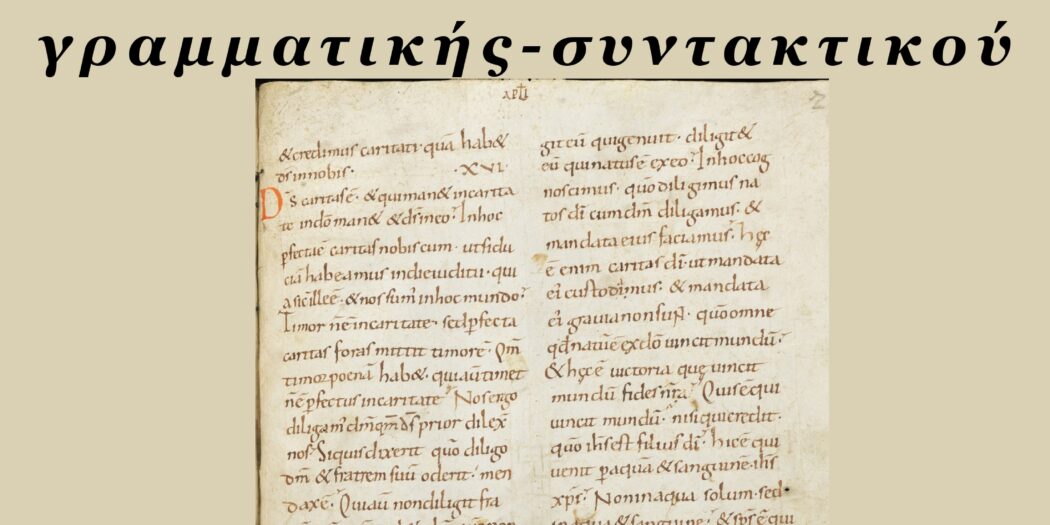 γραμματικής-συντακτικού
& credimus caritati quã hab&
ds innobis· ·XVI·
Ds caritasẽ· & quiman& incarita
te indõ man& & dsineo· Inhoc
pfectaẽ caritas nobiscum· utfidu
ciã habeamus indieiudicii· qui
a sic illeẽ· & nos sum inhoc mundo·
Timor nẽ incaritate· sed pfecta
caritas foras mittit timorẽ· Qm
timor poenã hab&· quiaut tim&
nẽ pfectus incaritate· Nos ergo
diligam dm qm ds prior dilex
nos· Siquis dixerit quõ diligo
dm & fratrem suũ oderit· men
daxẽ· Qui aũ non diligit fra
git eũ qui genuit· diligit &
eũ qui natusẽ exeo· Inhoc cog
noscimus· quõ diligimus na
tos di cum dm diligamus· &
mandata eius faciamus· hęc
ẽ enim caritas di· ut mandata
ei custodimus· & mandata
ei gravia non sunt· quõ omne
qd natũẽ exdo vincit mundũ·
& hęcẽ victoria quę vincit
mundũ fides nra· Quisẽ qui
vincit mundũ· nisi qui credit·
quõ ihs est filius di· hicẽ qui
venit p aquã & sanguinẽ· ihs
xps· Non in aqua solum· sed
in aqua & sanguine· & sps ẽ qui